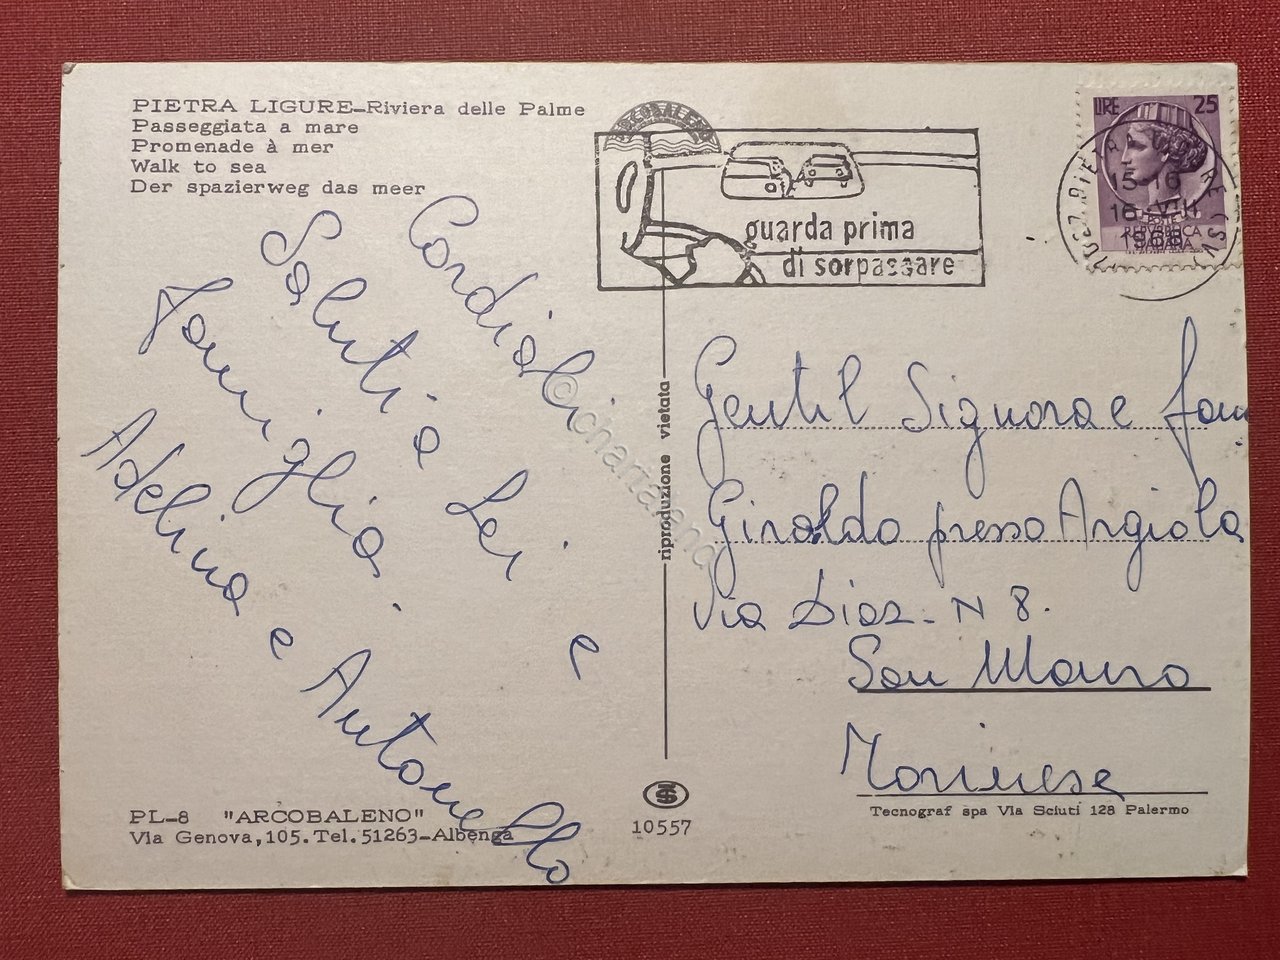 PIETRA LIGURE-Riviera delle Palme
Passeggiata a mare
Promenade à mer
Walk to sea
Der spazierweg das meer
ARCOBALENO
guarda prima
di sorpassare
LIRE 25
REPVBBLICA
ITALIANA
15-16
16.VII
1968
Cordiali
Saluti a Lei e
famiglia.
Adelina e Antonello
riproduzione vietata
©chartaland
Gentil Signora e fam
Giraldo presso Argiola
Via Diaz - N 8.
San Mauro
Torinese
PL-8 "ARCOBALENO"
Via Genova,105.Tel.51263-Albenga
10557
Tecnograf spa Via Sciuti 128 Palermo